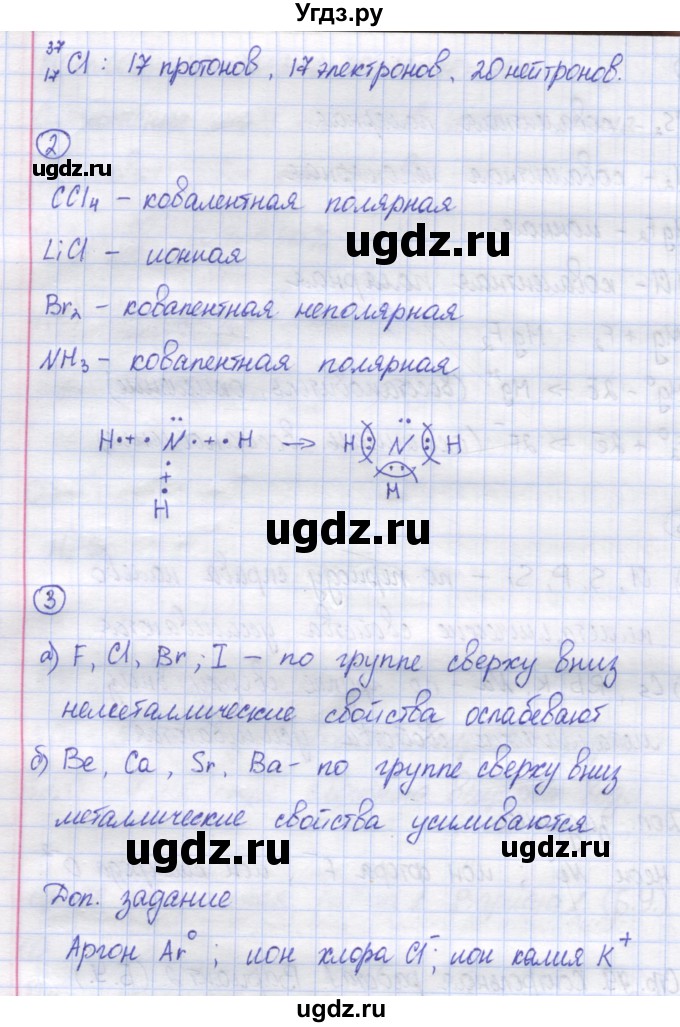 Угдз.ру
³⁷₁₇Cl : 17 протонов, 17 электронов, 20 нейтронов.
2
ugdz.ru
CCl₄ – ковалентная полярная
ugdz.ru
LiCl – ионная
Br₂ – ковалентная неполярная
NH₃ – ковалентная полярная
H·+·N·+·H → H:N:H
+
H H
ugdz.ru
3
а) F, Cl, Br, I – по группе сверху вниз
неметаллические свойства ослабевают
б) Be, Ca, Sr, Ba – по группе сверху вниз
металлические свойства усиливаются
ugdz.ru
ugdz.ru
Доп. задание
Аргон Ar⁰; ион хлора Cl⁻; ион калия K⁺
ugdz.ru